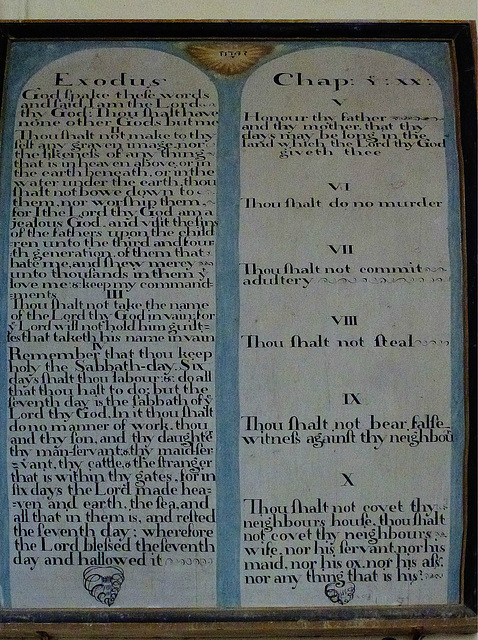 Exodus
God ſpake theſe words
and ſaid I am the Lord
thy God: Thou ſhalt have
none other Gods but me
II
Thou ſhalt not make to thy
ſelf any graven image, nor
the likeneſs of any thing
that is in heaven above, or in
the earth beneath, or in the
water under the earth, thou
ſhalt not bowe down to
them, nor worſhip them,
for I the Lord thy God am a
Jealous God, and viſit the ſins
of the fathers upon the child
ren unto the third and four
th generation of them that
hate me, and ſhew mercy
unto thouſands in them ẏ
love me & keep my command-
ments
III
Thou ſhalt not take the name
of the Lord thy God in vain: for
ẏ Lord will not hold him guilt-
leſs that taketh his name in vain
IV
Remember that thou keep
holy the Sabbath-day. Six
days ſhalt thou labour & do all
that thou haſt to do; but the
ſeventh day is the ſabbath of ẏ
Lord thy God. In it thou ſhalt
do no manner of work, thou
and thy ſon, and thy daughte
thy man-ſervant, & thy maid ſer-
vant, thy cattle, & the ſtranger
that is within thy gates, for in
ſix days the Lord made hea-
ven and earth, the ſea, and
all that in them is, and reſted
the ſeventh day; wherefore
the Lord bleſſed the ſeventh
day and hallowed it
Chap: ẏ: xx:
V
Honour thy father
and thy mother, that thy
days may be long in the
land which the Lord thy God
giveth thee
VI
Thou ſhalt do no murder
VII
Thou ſhalt not commit
adultery
VIII
Thou ſhalt not ſteal
IX
Thou ſhalt not bear falſe
witneſs againſt thy neighbou
X
Thou ſhalt not covet thy
neighbours houſe, thou ſhalt
not covet thy neighbours
wife, nor his ſervant, nor his
maid, nor his ox, nor his aſs,
nor any thing that is his: